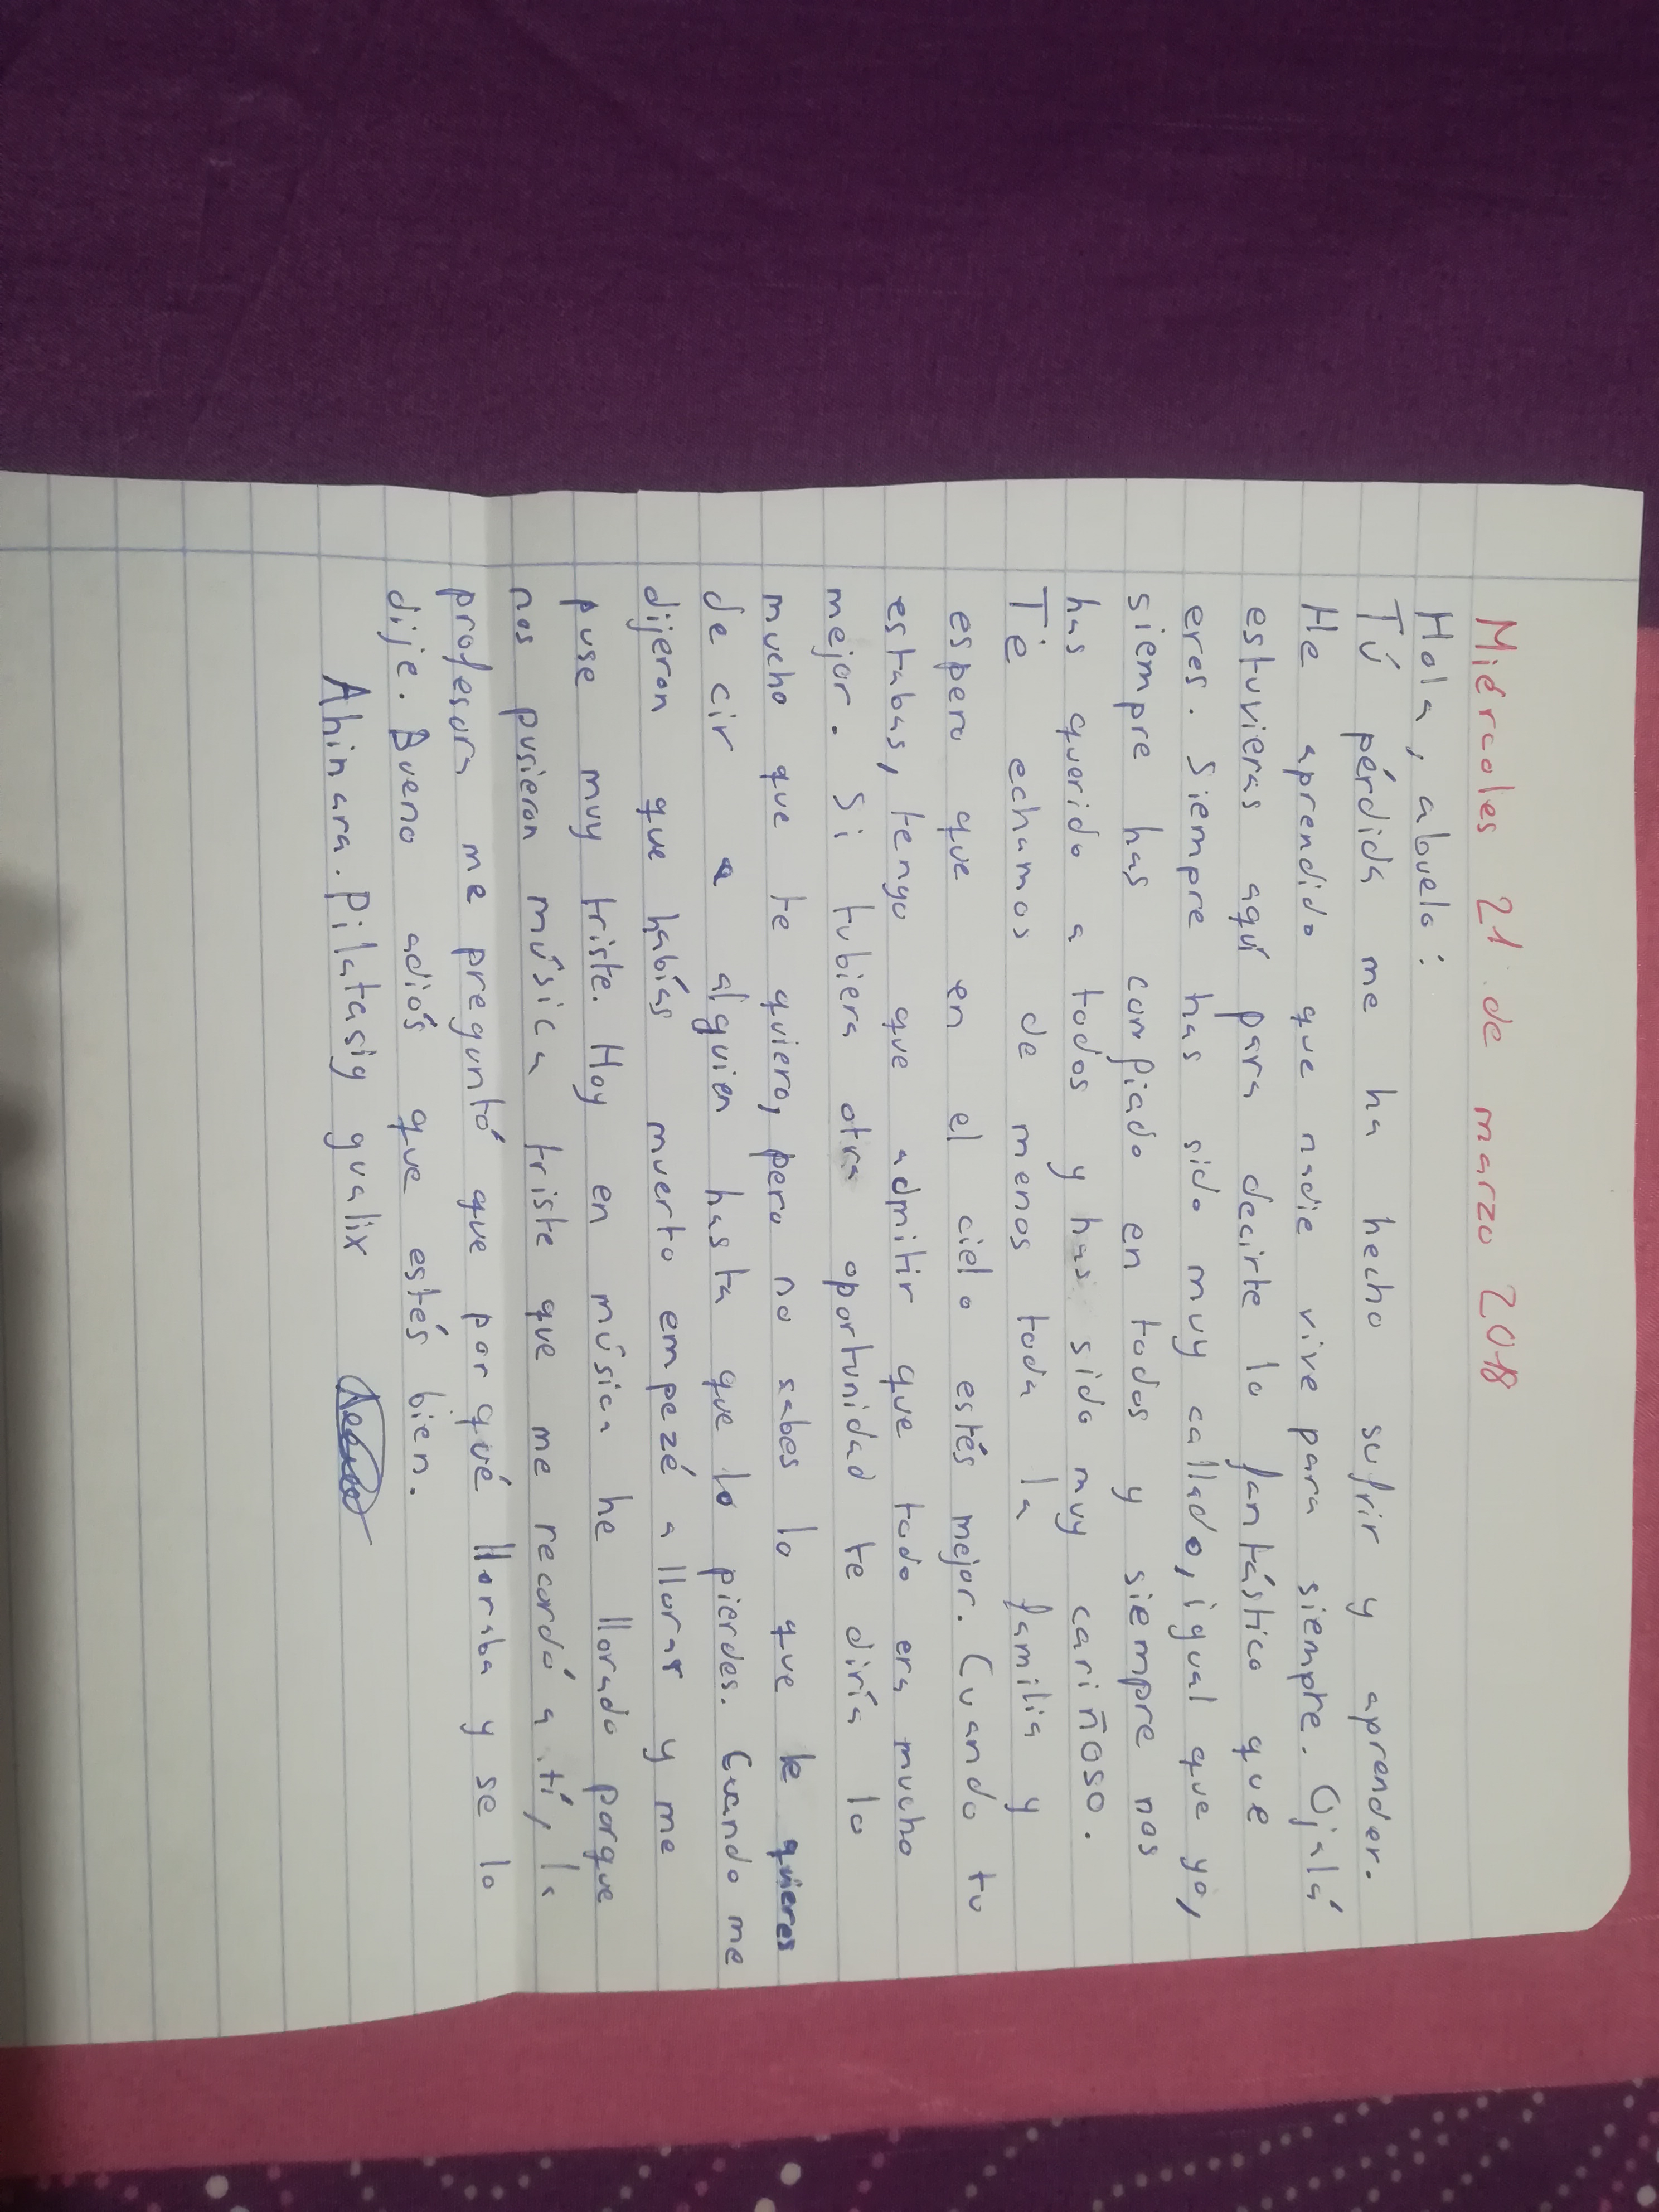 Miércoles 21 de marzo 2018
Hola, abuelo:
Tú pérdida me ha hecho sufrir y aprender.
He aprendido que nadie vive para siempre. Ojalá
estuvieras aquí para decirte lo fantástico que
eres. Siempre has sido muy callado, igual que yo,
siempre has comfiado en todos y siempre nos
has querido a todos y has sido muy cariñoso.
Te echamos de menos toda la familia y
espero que en el cielo estés mejor. Cuando tu
estabas, tengo que admitir que todo era mucho
mejor. Si tubiera otra oportunidad te diría lo
mucho que te quiero, pero no sabes lo que le quieres
de cir a alguien hasta que lo pierdes. Cuando me
dijeron que habías muerto empezé a llorar y me
puse muy triste. Hoy en música he llorado porque
nos pusieron música triste que me recordó a tí, la
profesora me preguntó que por qué lloraba y se lo
dije. Bueno adiós que estés bien.
Ahinara. Pilatasig gualix